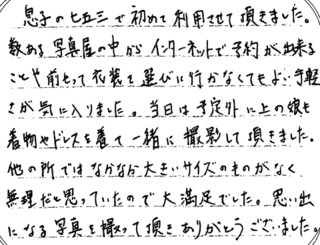 息子の七五三で初めて利用させて頂きました。
数ある写真屋の中からインターネットで予約が出来る
ことや前もって衣装を選びに行かなくてもよい手軽
さが気に入りました。当日は予定外に上の娘も
着物やドレスを着て一緒に撮影して頂きました。
他の所ではなかなか大きいサイズのものがなく
無理だと思っていたので大満足でした。思い出
になる写真を撮って頂きありがとうございました。